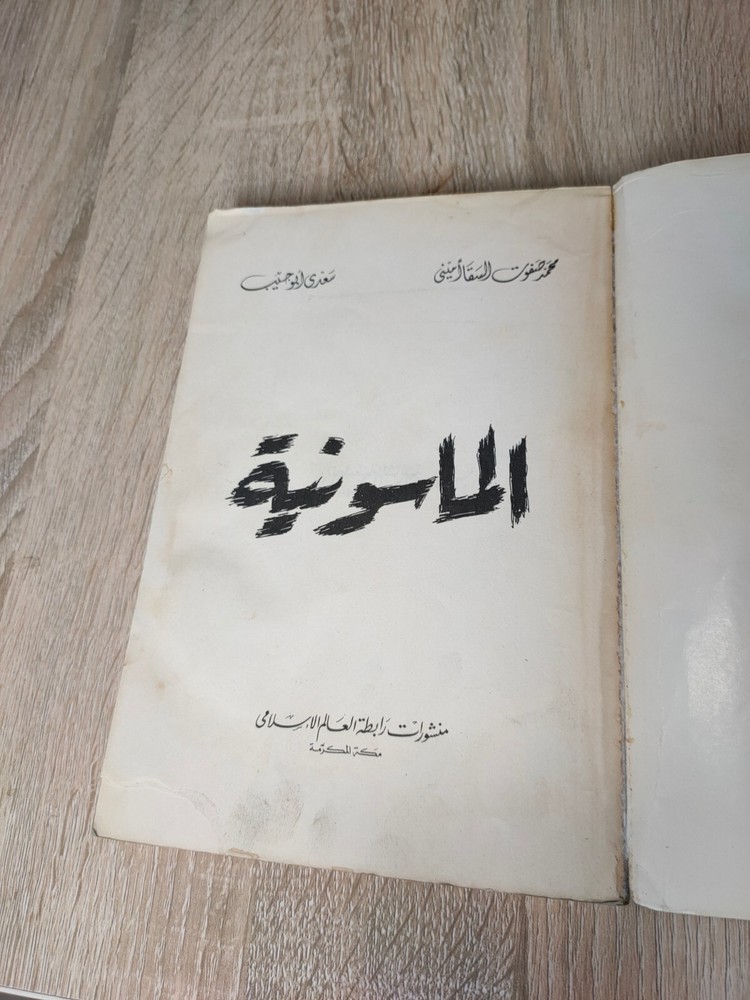 محمد صفوت السقا أميني
سعدي أبو جيب
الماسونية
منشورات رابطة العالم الإسلامي
مكة المكرمة